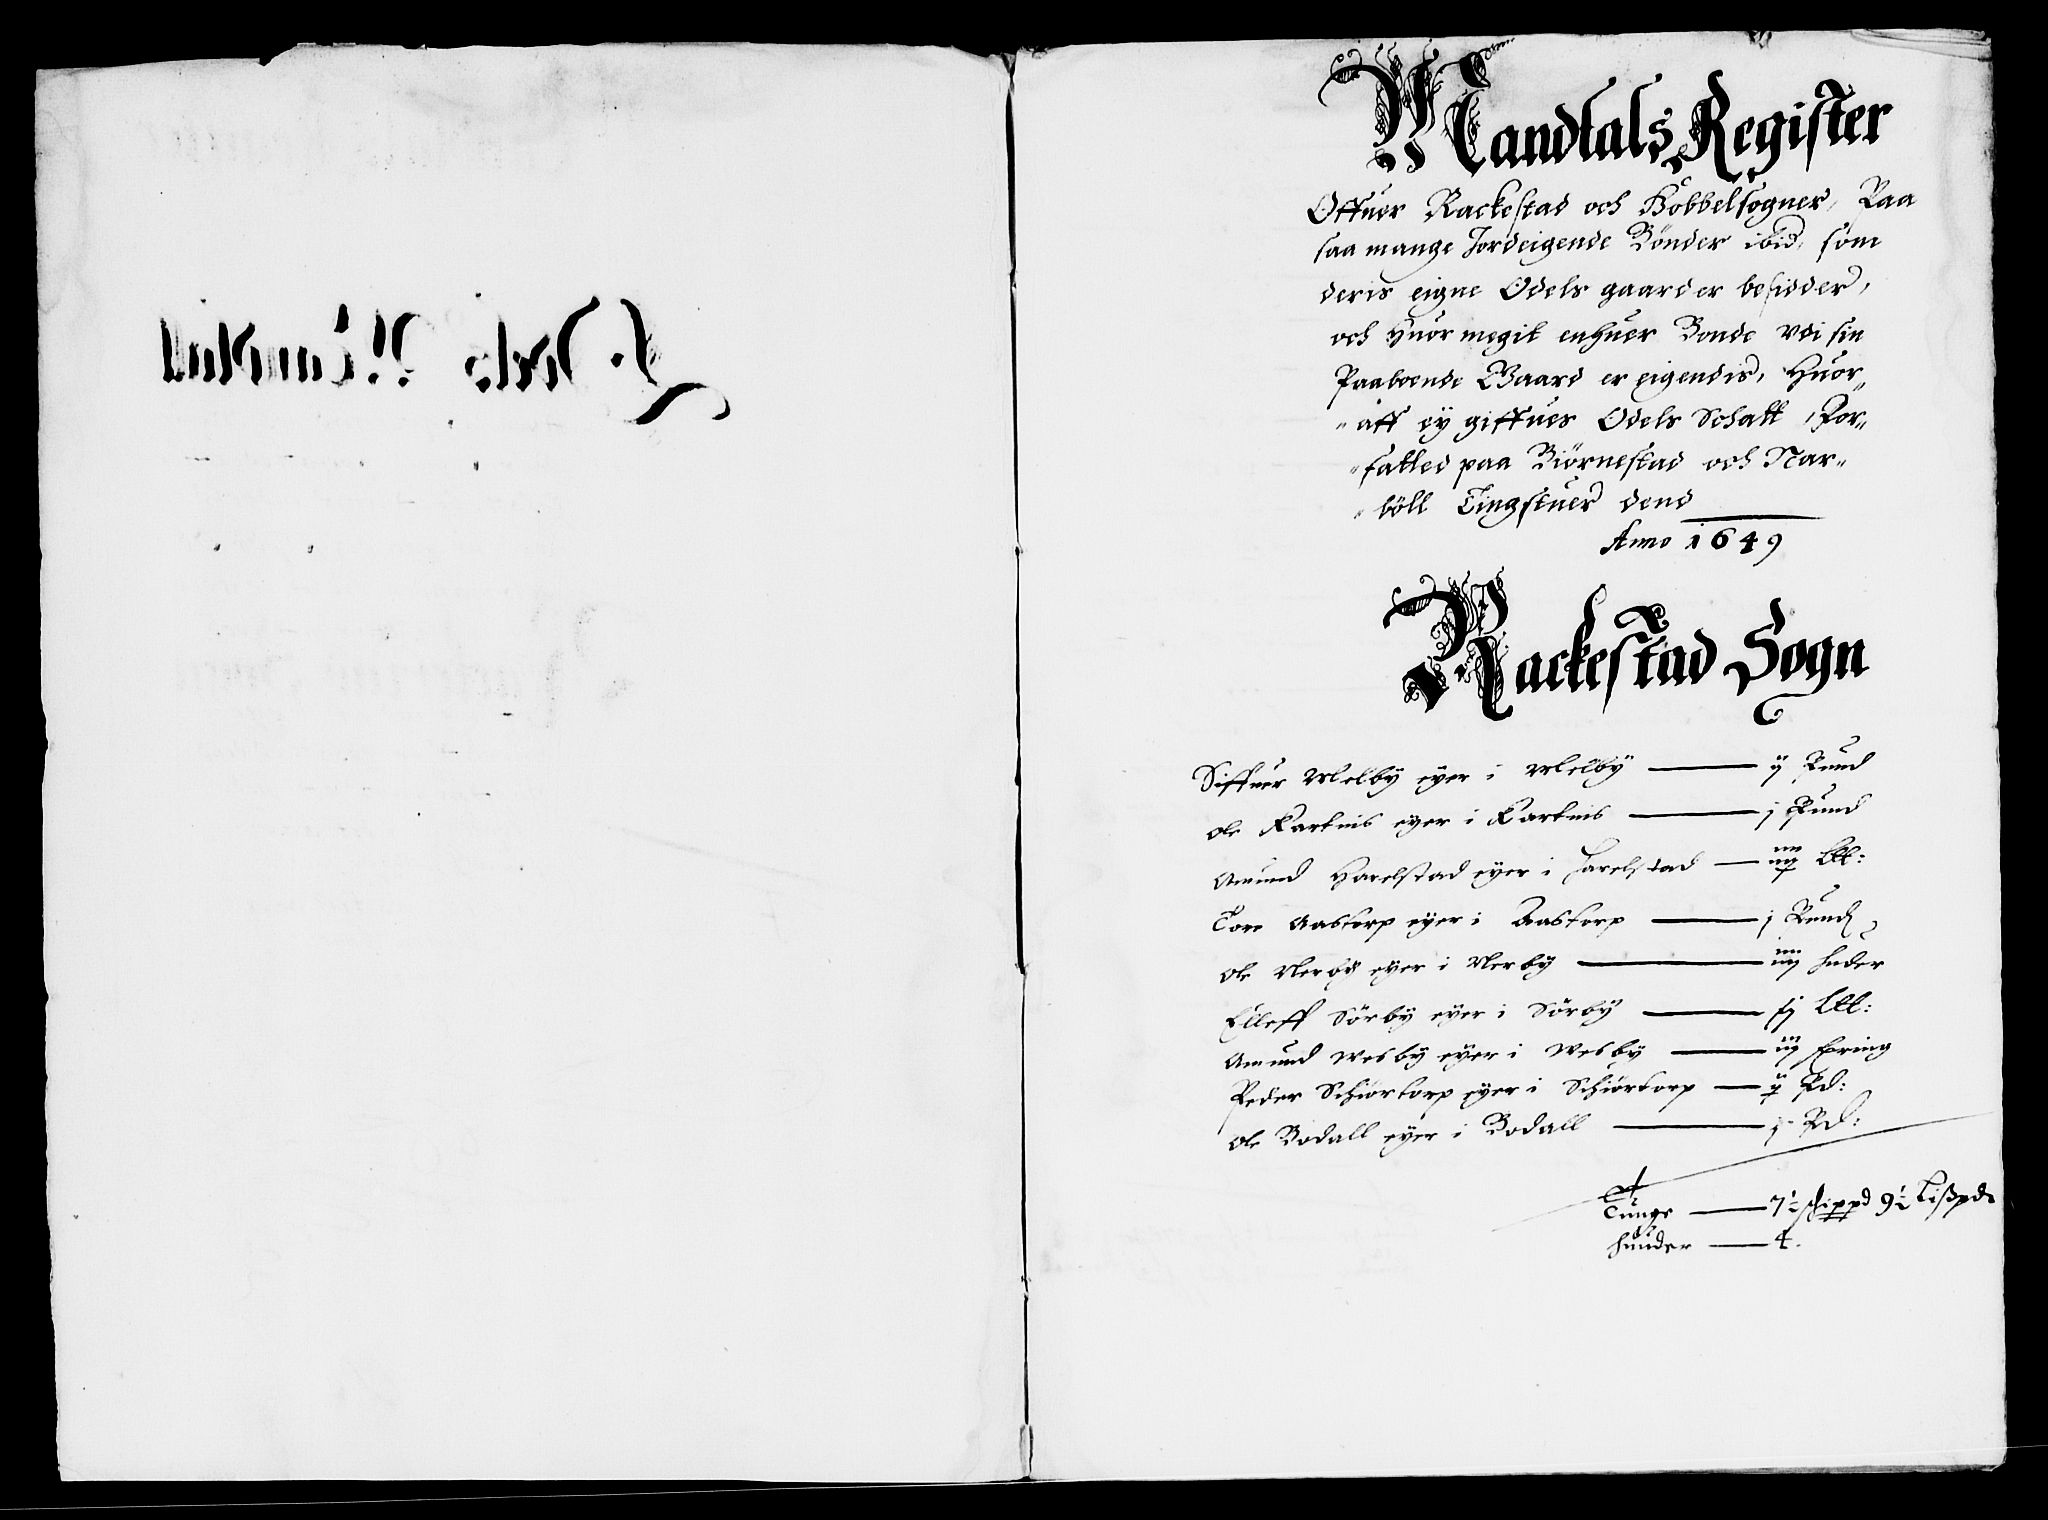 Mandtals Register
Offuer Rackestad och Böbbelsogner, Paa
saa mange Jordeigende Bönder ibid, som
deris eigne Odels gaarder besidder,
och Huor megit enhuer Bonde vdi sin
Paaboende Gaard er eigendis, Huor„
„aff ey giffues Odels Schatt, For„
„fatted paa Biörnestad och Nar„
„böll Tingstuer dend
Anno 1649
Rackestad Sogn
Siffuer Melby eyer i Melby — ij Pund
Ole Kartnis eyer i Kartnis — j Pund
Amund Harelstad eyer i Harelstad — Ltt:
Tore Aastorp eyer i Aastorp — j Pund
Ole Nerby eyer i Nerby — iiij huder
Elleff Sörby eyer i Sörby — Ltt:
Amund Wesby eyer i Wesby — iij fering
Peder Schiörtorp eyer i Schiörtorp — ij Pd:
Ole Bodall eyer i Bodall — j Pd:
Tunge — 7½ schippd 9½ Lißpd
huuder — 4.